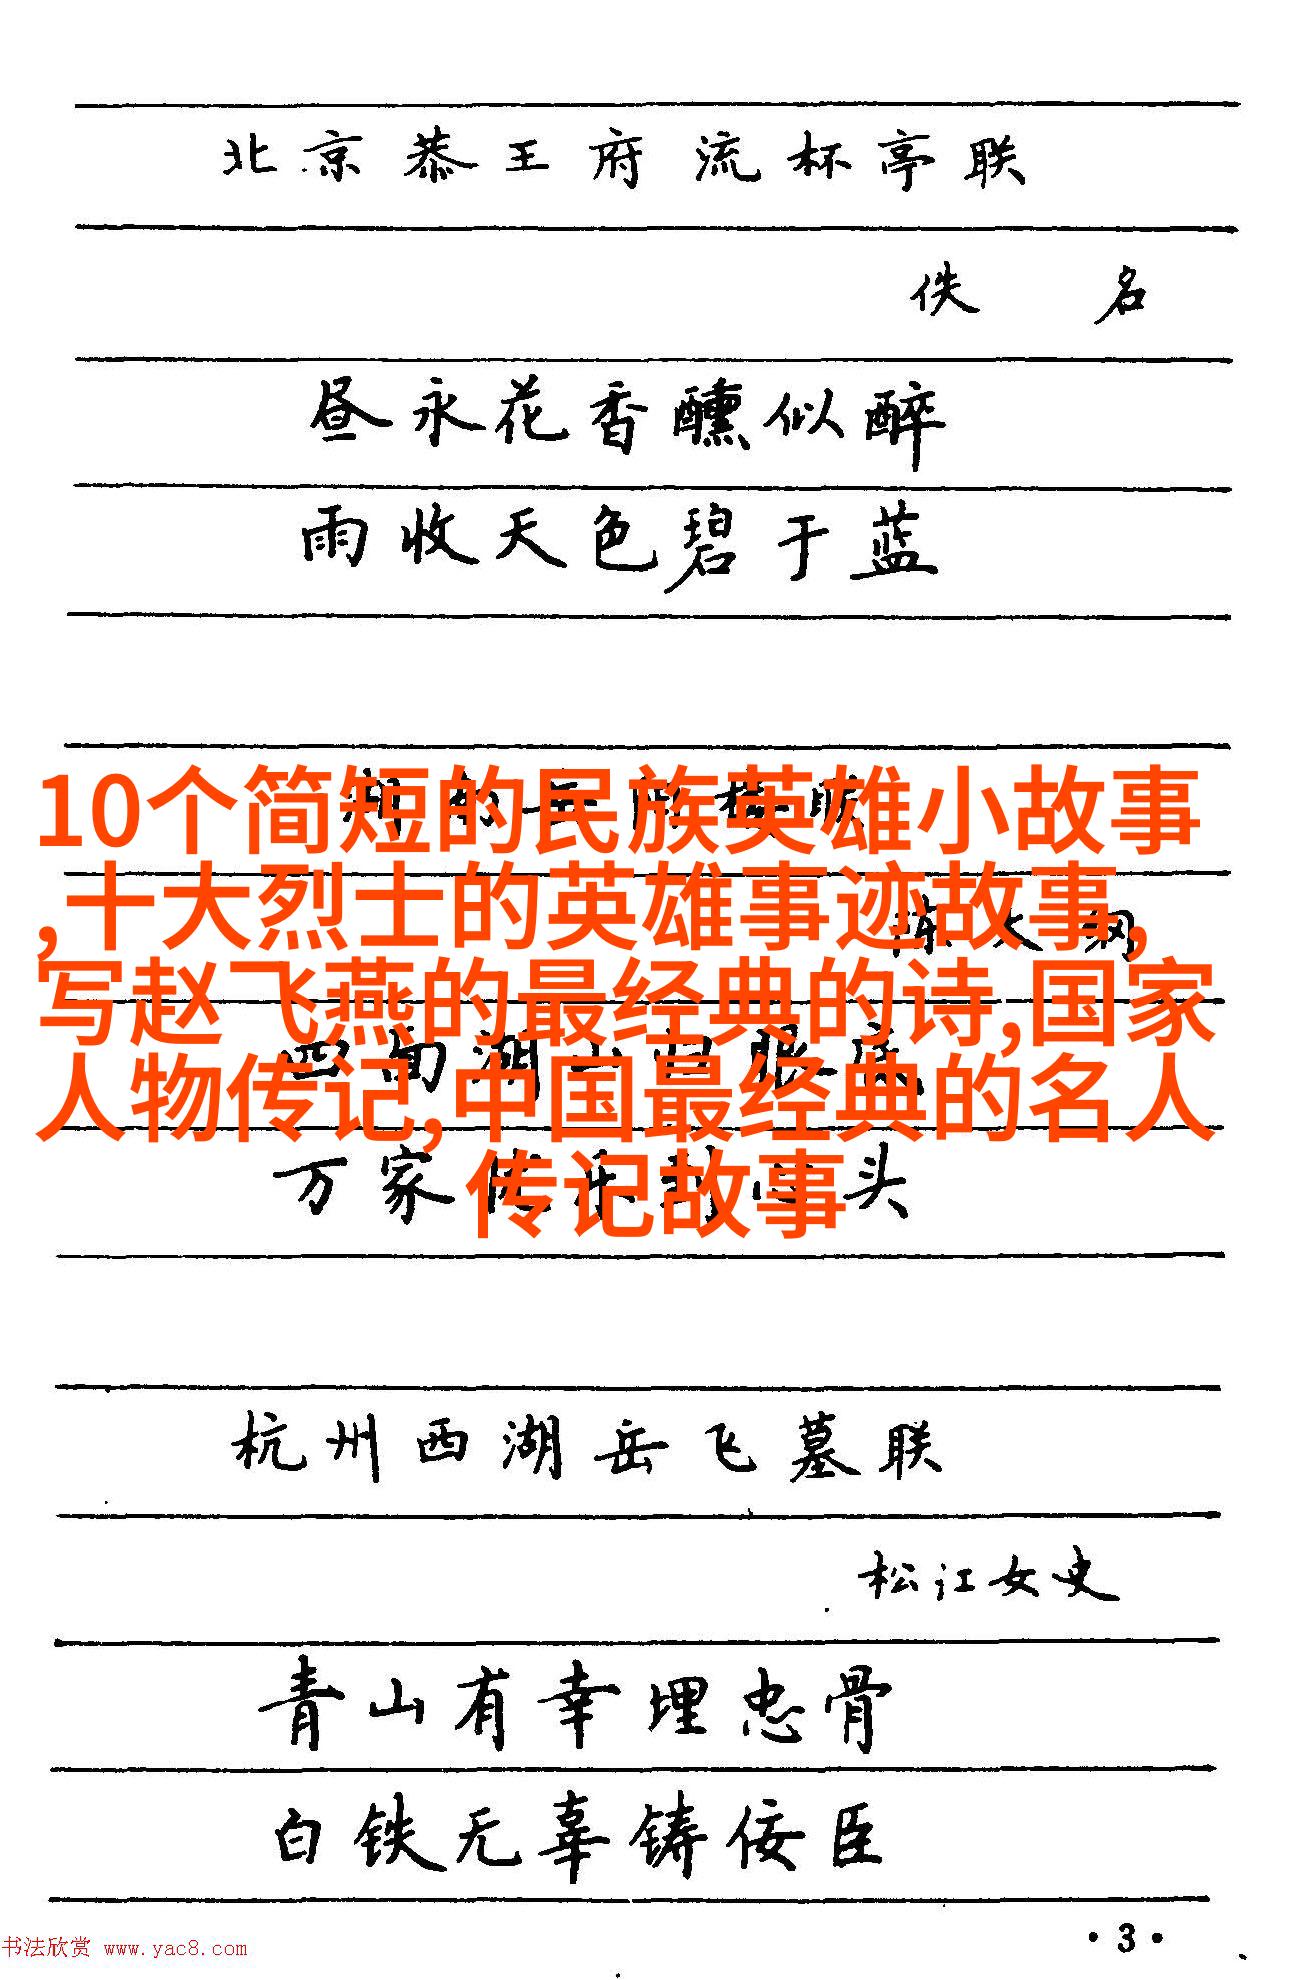 北京恭王府流杯亭联
佚名
昼永花香醺似醉
雨收天色碧于蓝
10个简短的民族英雄小故事
,十大烈士的英雄事迹故事,
写赵飞燕的最经典的诗,国家
人物传记,中国最经典的名人
传记故事
万家 头
杭州西湖岳飞墓联
松江女史
青山有幸埋忠骨
白铁无辜铸佞臣
·3·
书法欣赏 www.yac8.com